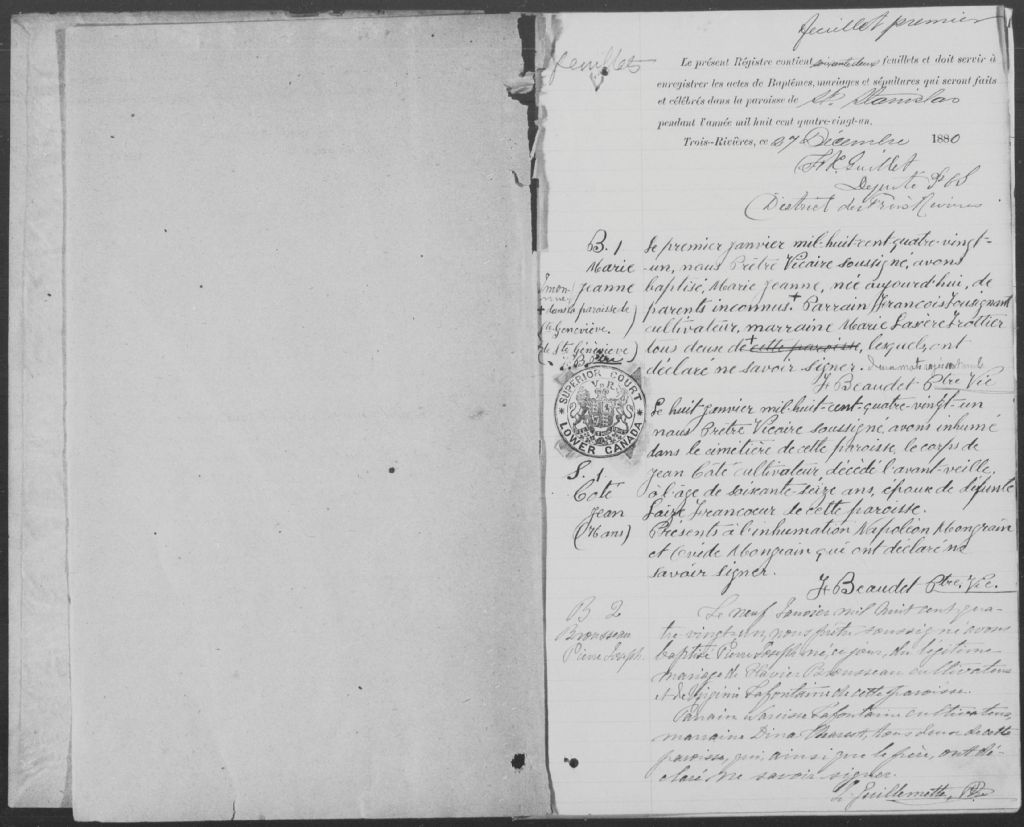 feuillet premier
feuillets
Le présent Régistre contient soixante deux feuillets et doit servir à
enregistrer les actes de Baptêmes, mariages et sépultures qui seront faits
et célébrés dans la paroisse de St. Stanislas
pendant l'année mil huit cent quatre-vingt-un.
Trois-Rivières, ce 27 Décembre 1880
Guillet
Deputé P C S
District des Trois Rivieres
B. 1
Marie
Jeanne
+ dans la paroisse de
Ste Geneviève.
de Ste Geneviève)
Le premier janvier mil-huit-cent-quatre-vingt-
un, nous Prêtre Vicaire soussigné, avons
baptisé, Marie Jeanne, née aujourd'hui, de
parents inconnus.+ Parrain, François Tousignant
cultivateur, marraine Marie Lasère Trottier
tous deux de + cette paroisse, lesquels ont
déclaré ne savoir signer.
F. Beaudet Ptre Vic
SUPERIOR COURT
V R
LOWER CANADA
S. 1
Coté
Jean
(76 ans)
Le huit janvier mil-huit-cent-quatre-vingt-un
nous Prêtre Vicaire soussigné, avons inhumé
dans le cimetière de cette paroisse, le corps de
Jean Coté cultivateur, décédé l'avant-veille,
à l'âge de soixante-seize ans, époux de défunte
Francoeur de cette paroisse.
Présents à l'inhumation Napoléon Mongrain
et Ovide Mongrain qui ont déclaré ne
savoir signer.
F. Beaudet Ptre. Vic.
B 2
Brousseau
Pierre Joseph
Le neuf Janvier mil huit cent qua-
tre vingt-un, nous prêtre soussigné avons
baptisé Pierre Joseph né ce jour, du légitime
mariage de Flavier Brousseau cultivateur
et de Virginie Lafontaine de cette paroisse.
Parrain Narcisse Lafontaine cultivateur,
marraine Dina tous deux de cette
paroisse, qui, ainsi que le père, ont dé-
claré ne savoir signer.
Guillemette, Ptre